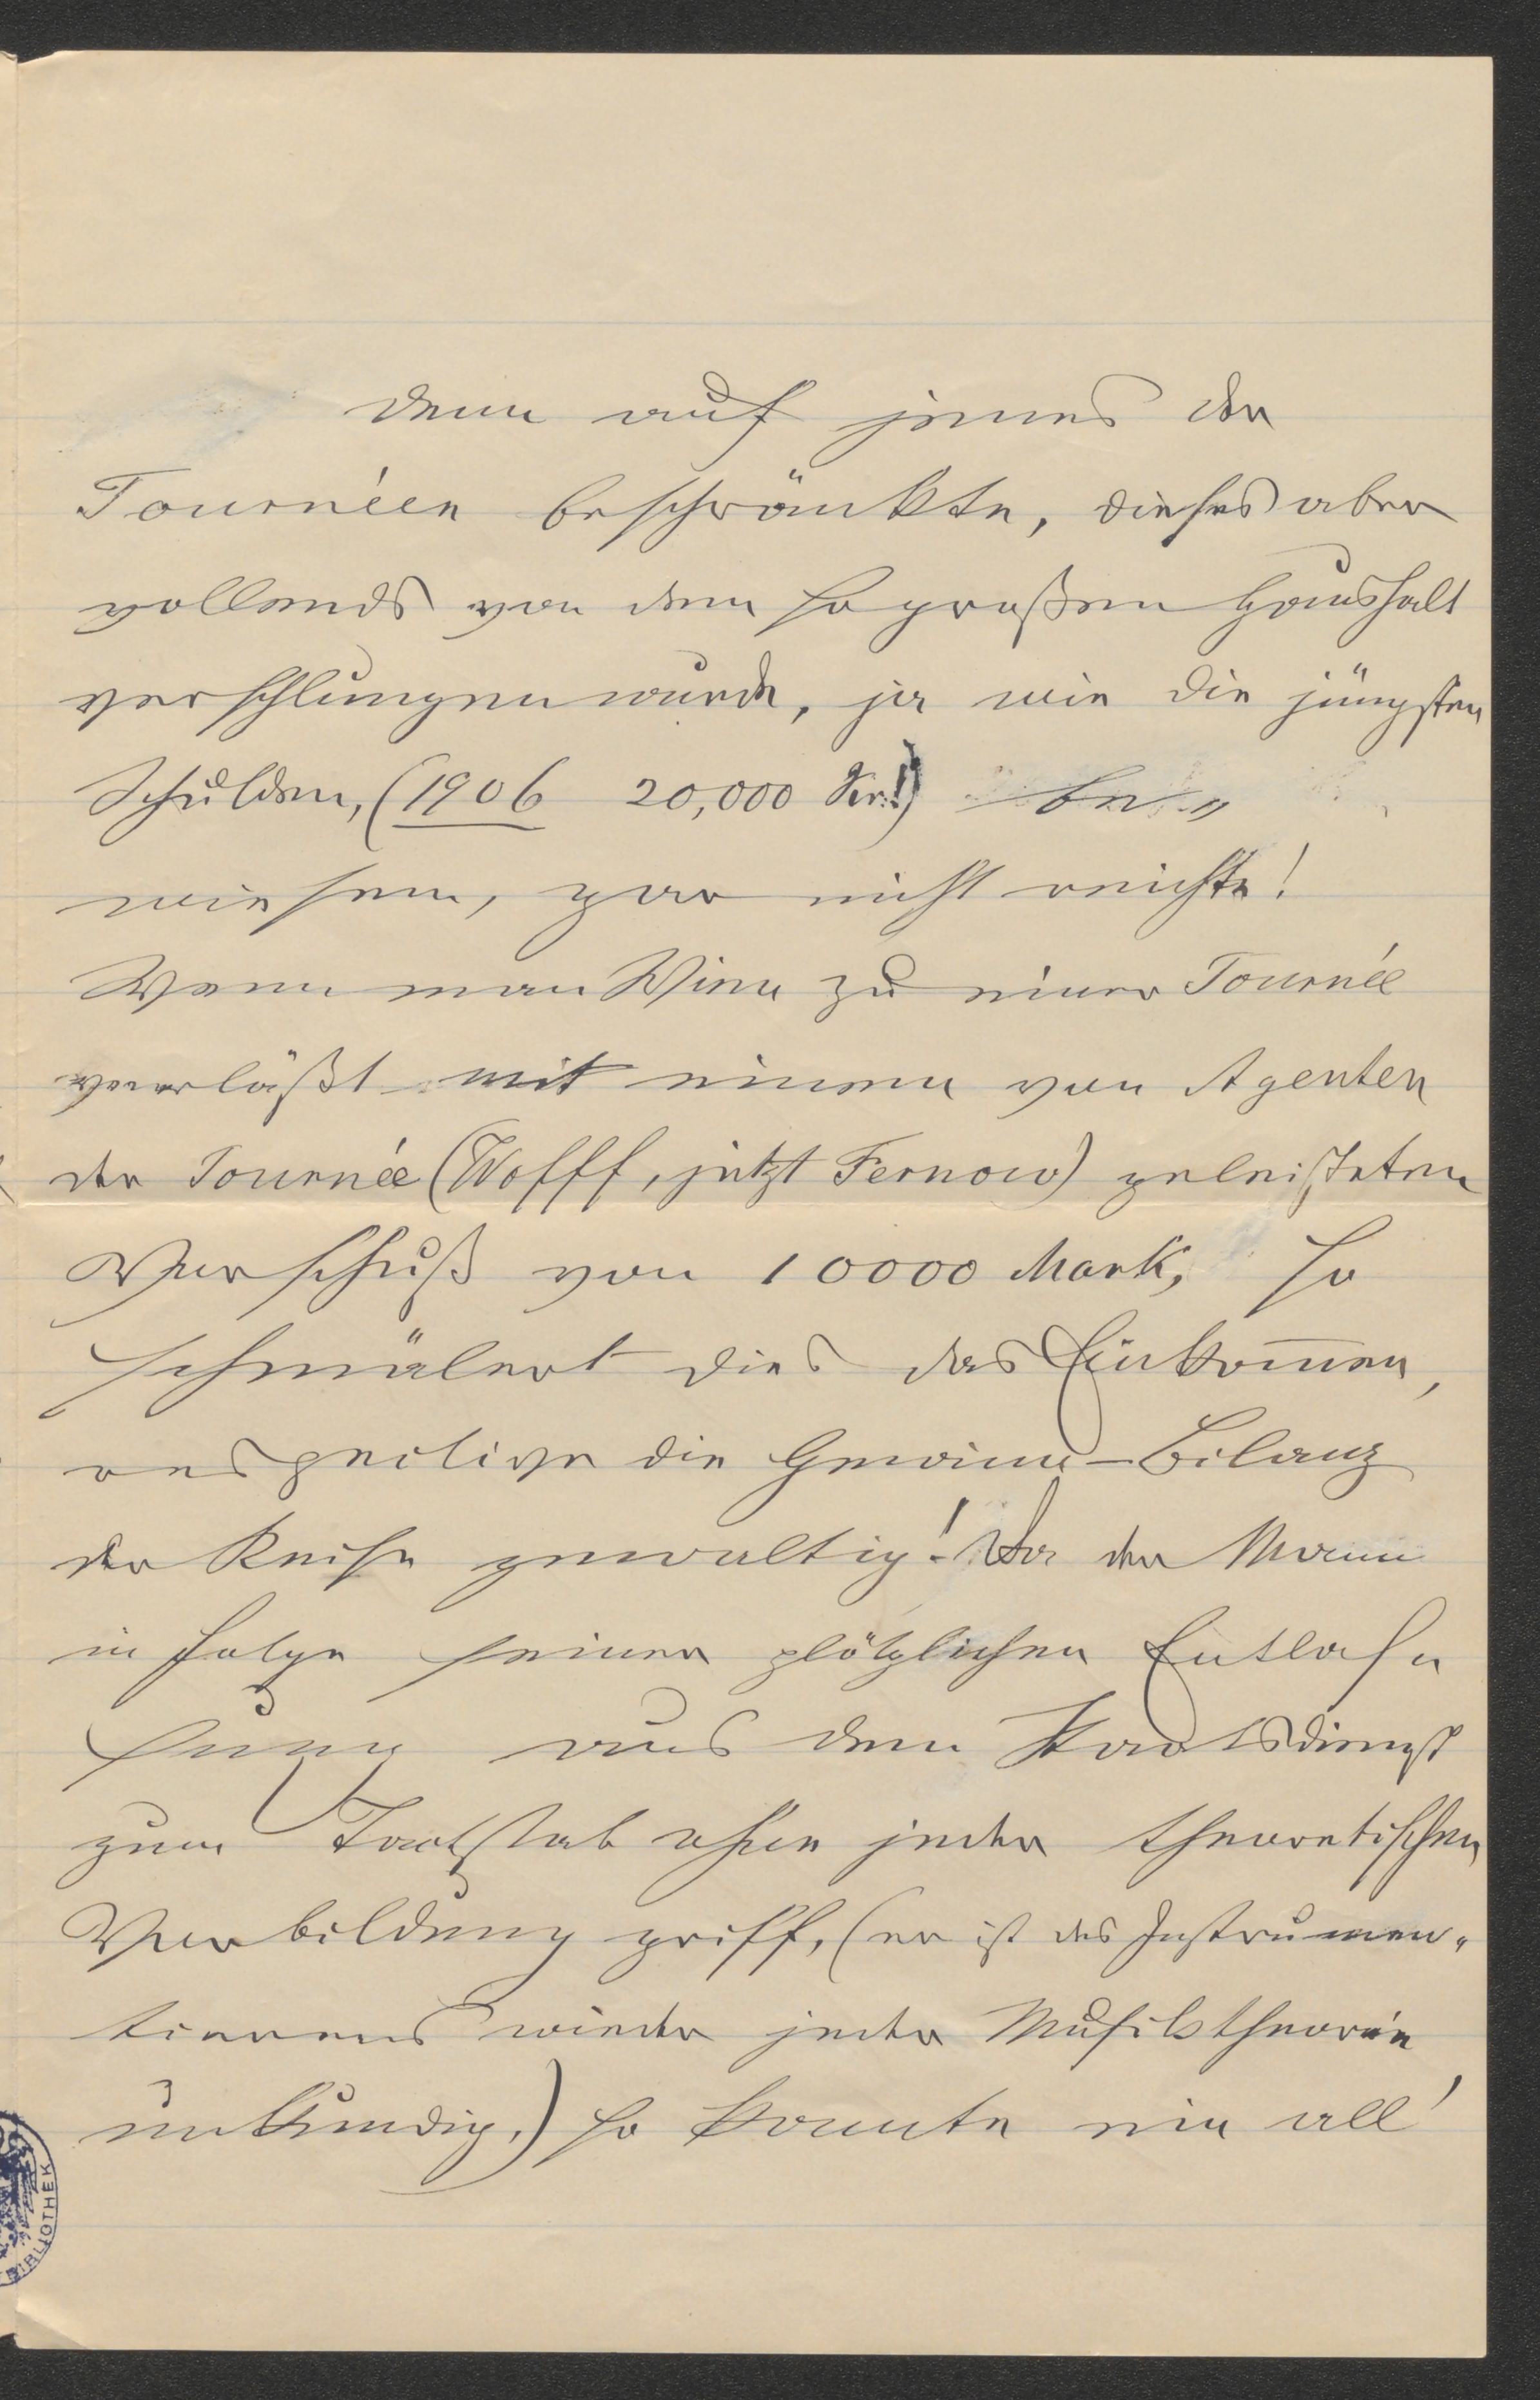 denn auf jenes der
Tournéen beschränkte, dieses aber
vollends von dem so großen Haushalt
verschlungen wurde, ja wie die jüngsten
Schulden, (1906 20,000 Kr.!) be„
wiesen, gar nicht reichte!
Wenn man Wien zu einer Tournée
verläßt mit einem von Agenten
der Tournée (Wofff, jetzt Fernow) geleisteten
Vorschuß von 10000 Mark, so
schmälert dies das Einkom̅en,
respective die Gewinn-Bilanz
der Reise gewaltig! Da der Mann
in Folge seiner plötzlichen Entlas„
sung aus dem Staatsdienst
zum Tactstab ohne jeder theoretischen
Vorbildung griff, (er ist des Instrumen„
tierens wieder jeder Musiktheorie
unkundig,) so konnte nie all'
BIBLIOTHEK